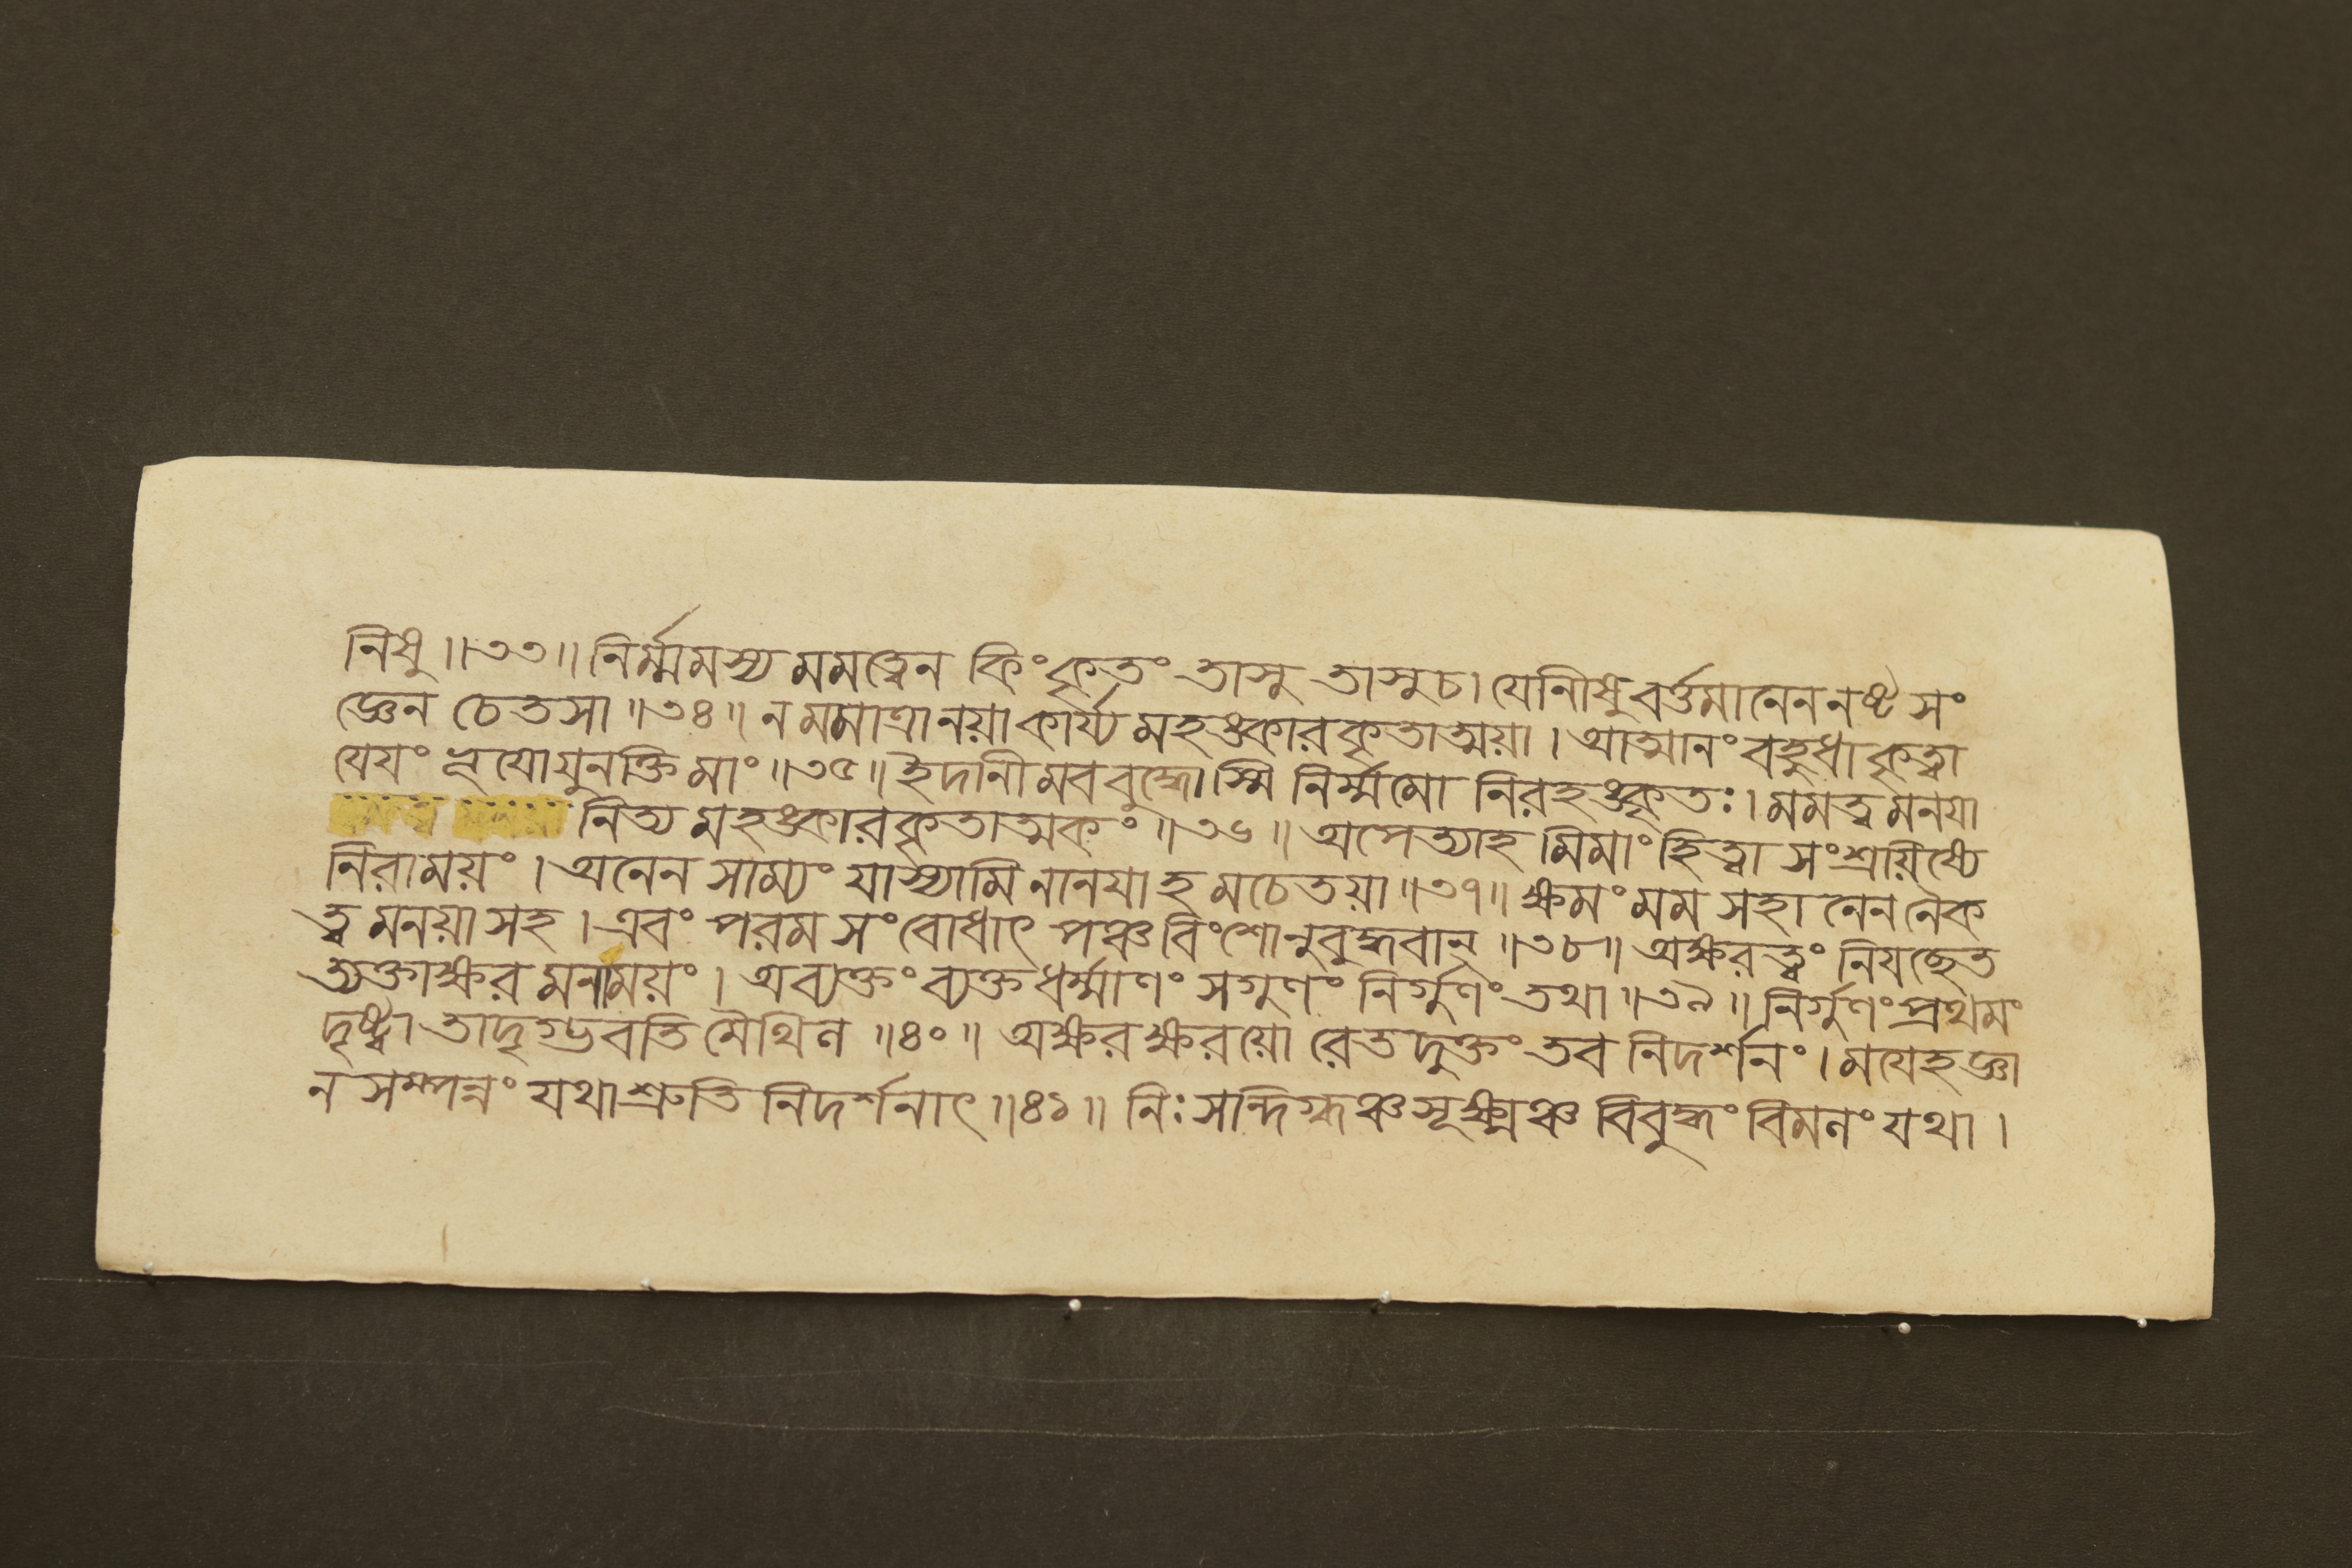 নিষু॥৩৩॥নির্ম্মমস্য মমত্বেন কিংকৃতং তাসু তাসুচ। যেনীষুবর্ত্তমানেননষ্টসং
জ্ঞেন চেতসা॥৩৪॥ন মমাত্রানয়াকার্য্যমহঙ্কারকৃতাত্ময়া। আত্মানং বহুধাকৃত্বা
যেয়ং নূয়োযুনক্তিমাং॥৩৫॥ইদানীমববুদ্ধোস্মি নির্ম্মমো নিরহঙ্কৃতঃ।মমত্বমনয়া
নিত্যমহঙ্কারকৃতাত্মকং॥৩৬॥ অপেত্যাহমিমাংহিত্বা সংশ্রয়িষ্যে
নিরাময়ং। অনেন সাম্যং যাস্যামিনানয়াহমচেতয়া॥৩৭॥ ক্ষমংমম সহানেননৈক
ত্বমনয়াসহ। এবং পরমসংবোধাৎ পঞ্চবিংশোনুবুদ্ধবান্॥৩৮॥ অক্ষরত্বং নিযচ্ছেত
ত্যক্তাক্ষরমনাময়ং। অব্যক্তংব্যক্তধর্ম্মাণং সগুণং নির্গুণংতথা॥৩৯॥নির্গুণংপ্রথমং
দৃষ্ট্বা তাদৃগ্ভবতি মৈথিল॥৪০॥ অক্ষরক্ষরয়োরেতদুক্তং তব নিদর্শনং। ময়েহজ্ঞা
ন সম্পন্নং যথাশ্রুতি নিদর্শনাৎ॥৪১॥ নিঃসন্দিগ্ধঞ্চসূক্ষ্মঞ্চ বিবুদ্ধং বিমলং যথা।